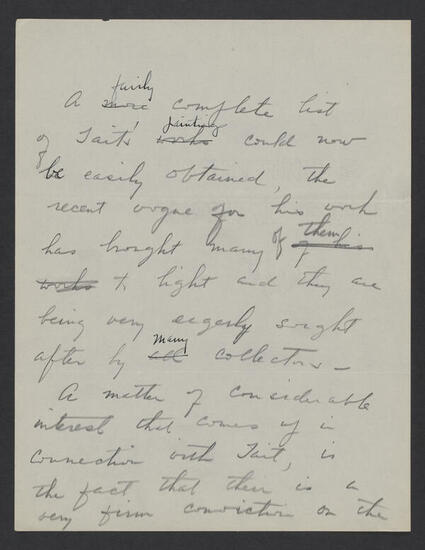 fairly
A more complete list
paintings
of Tait's works could now
be easily obtained, the
recent vogue for his work
has brought many of them of his
works to light and they are
being very eagerly sought
many
after by all collectors –
A matter of considerable
interest that comes up in
connection with Tait, is
the fact that there is a
very firm conviction on the